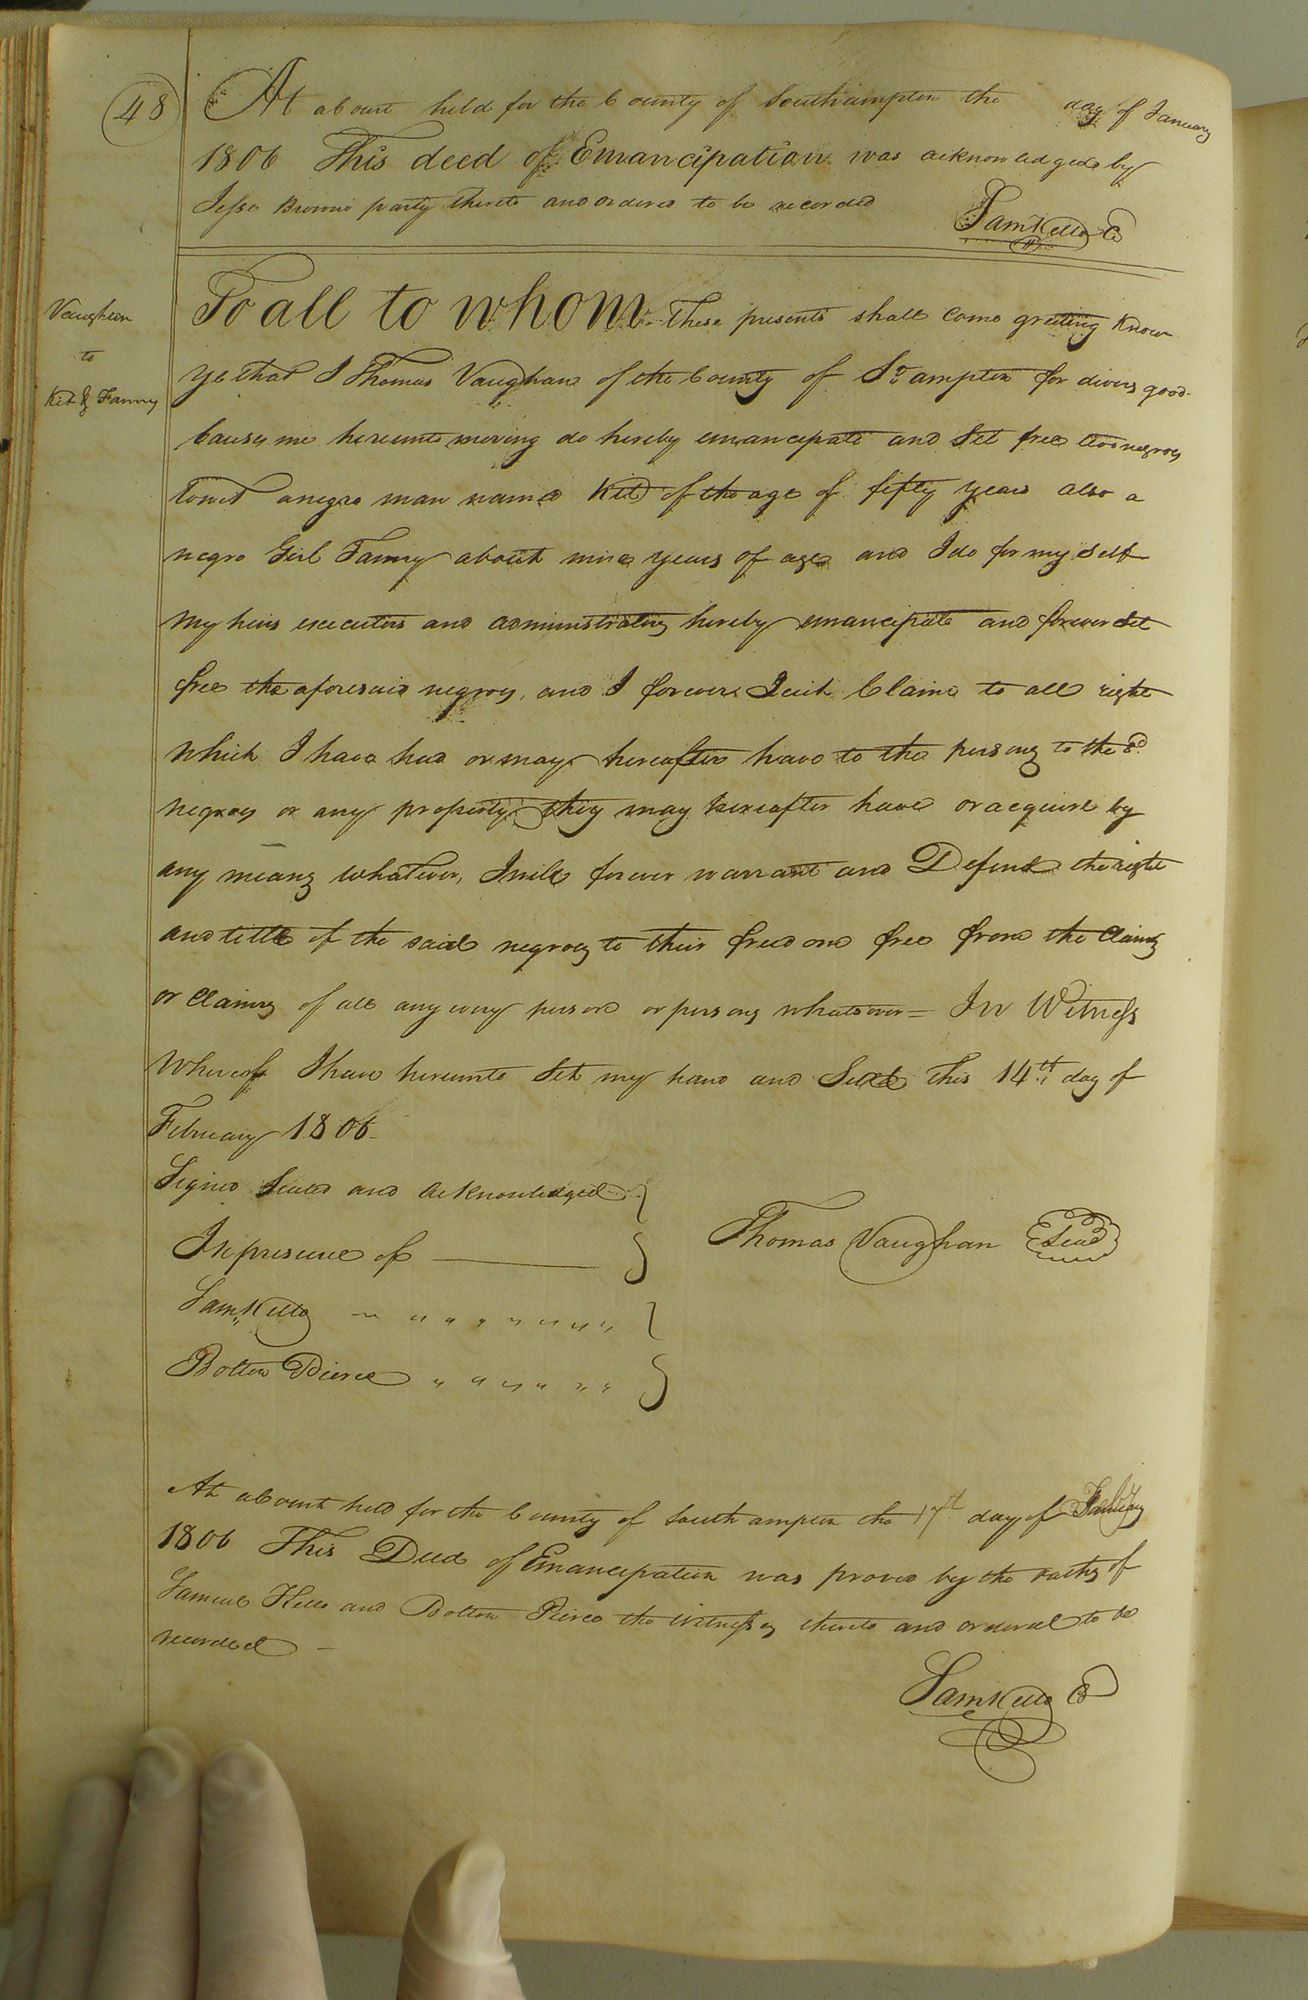 48
At a Court held for the County of Southampton the day of January
1806 This deed of Emancipation was acknowledged by
Jesse Browne party thereto and ordered to be recorded
Sam Kello C
Vaughan
to
Kit & Fanny
To all to whom these presents shall come greeting Know
ye that I Thomas Vaughan of the County of So.ampton for divers good
Causes me hereunto moving do hereby emancipate and Set free two negroes
towit a negro man named Kitt of the age of fifty years also a
negro Girl Fanny about nine years of age and I do for my Self
my heirs executors and administrators hereby emancipate and forever Set
free the aforesaid negroes, and I forever Quit Claim to all right
which I have had or may hereafter have to the persons to the sd.
negroes or any property they may hereafter have or acquire by
any means whatever, I will forever warrant and Defend the right
and title of the said negroes to their freedom free from the claims
or Claims of all any every person or persons whatsoever = In Witness
Whereof I have hereunto Set my hand and Seal this 14th. day of
February 1806
Signed Sealed and Acknowledged
In presence of
Thomas Vaughan Seal
Sam. Kello
Bolton Pierce
At a Court held for the County of Southampton the 17th day of February
1806 This Deed of Emancipation was proved by the oaths of
Samuel Kello and Bolton Pierce the witnesses thereto and ordered to be
recorded
Sam Kello C